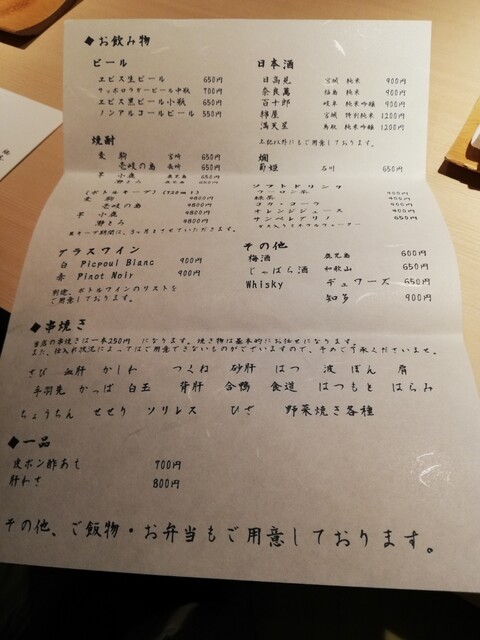 ◆お飲み物
ビール
ヱビス生ビール 650円
サッポロラガービール中瓶 700円
ヱビス黒ビール小瓶 650円
ノンアルコールビール 550円
日本酒
日高見 宮城 純米 900円
奈良萬 福島 純米 900円
百十郎 岐阜 純米吟醸 900円
綿屋 宮城 特別純米 1200円
満天星 鳥取 純米吟醸 1200円
上記以外にもご用意しております。
焼酎
麦 駒 宮崎 650円
壱岐の島 長崎 650円
芋 小鹿 鹿児島 650円
燗
菊姫 石川 650円
(ボトルキープ) (720ml)
麦 駒 4800円
壱岐の島 4800円
芋 小鹿 4800円
灘とみ 4800円
※キープ期間は、3ヶ月とさせていただきます。
ソフトドリンク
ウーロン茶 400円
緑茶 400円
コカ・コーラ 400円
オレンジジュース 400円
サンペレグリノ
グラスワイン
白 Picpoul Blanc 900円
赤 Pinot Noir 900円
別途、ボトルワインのリストを
ご用意しております。
その他
梅酒 鹿児島 600円
じゃばら酒 和歌山 650円
Whisky デュワーズ 650円
知多 900円
◆串焼き
当店の串焼きは一本250円 になります。焼き物は基本的にお任せになります。
また、仕入れ状況によってはご用意できないものがございますので、予めご了承くださいませ。
さび 血肝 かしわ つくね 砂肝 はつ 波 ぼん 肩
手羽先 かっぱ 白玉 背肝 合鴨 食道 はつもと はらみ
ちょうちん せせり ソリレス ひざ 野菜焼き各種
◆一品
皮ポン酢あえ 700円
肝わさ 800円
その他、ご飯物・お弁当もご用意しております。